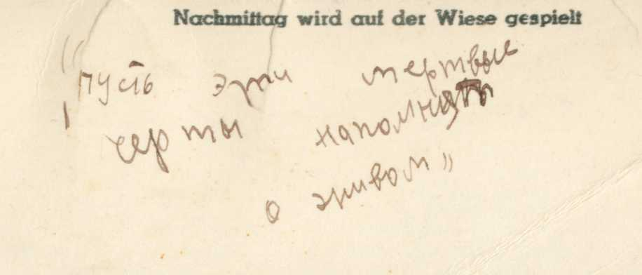 Nachmittag wird auf der Wiese gespielt
„Пусть эти мертвые
черты напомнят
о живом"